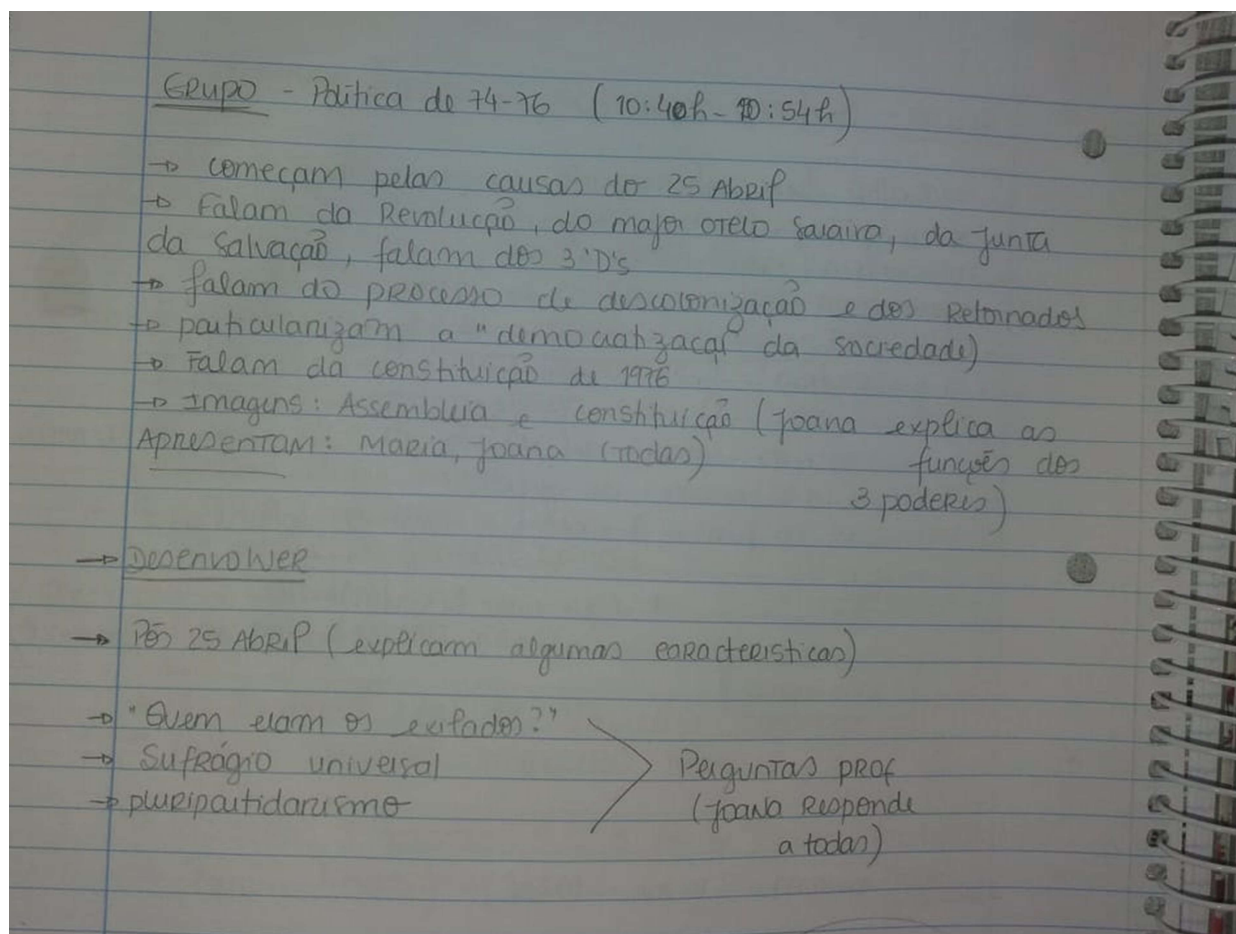 Grupo - Politica de 74-76 (10:40h - 10:54h)
→ começam pelas causas do 25 Abril
→ Falam da Revolução, do major Otelo Saraiva, da Junta
da Salvação, falam dos 3 'D's
→ falam do processo de descolonização e dos Retornados
→ particularizam a "democratização da sociedade)
→ Falam da constituição de 1976
→ Imagens: Assembleia e constituição (Joana explica as
funções dos
3 poderes)
Apresentam: Maria, Joana (todas)
→ Desenvolver
→ Pós 25 Abril (explicam algumas caracteristicas)
→ "Quem eram os exilados?"
→ Sufrágio universal
→ pluripartidarismo
Perguntas prof
(Joana Responde
a todas)